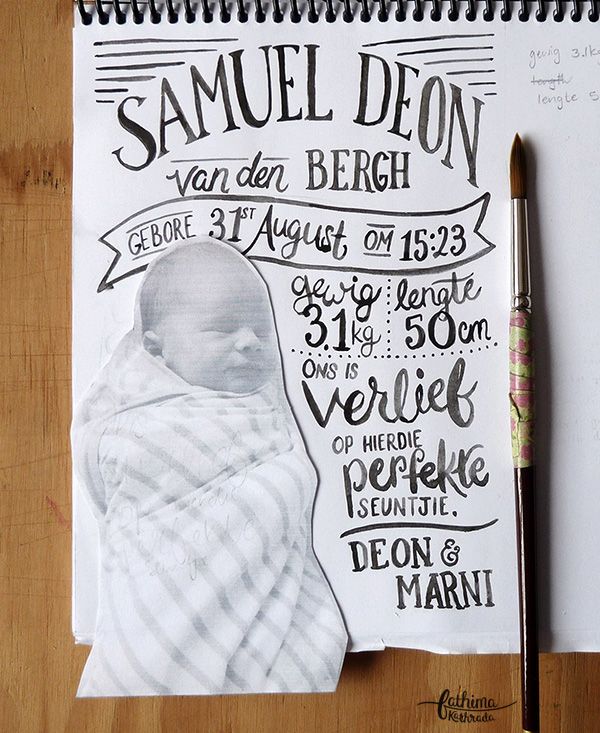 SAMUEL DEON
van den BERGH
GEBORE 31ST August OM 15:23
gewig 3.1kg
lengte 50cm
ONS IS
verlief
OP HIERDIE
perfekte
SEUNTJIE.
DEON &
MARNI
gewig 3.1k
length
lengte 5
fathima
Kathrada